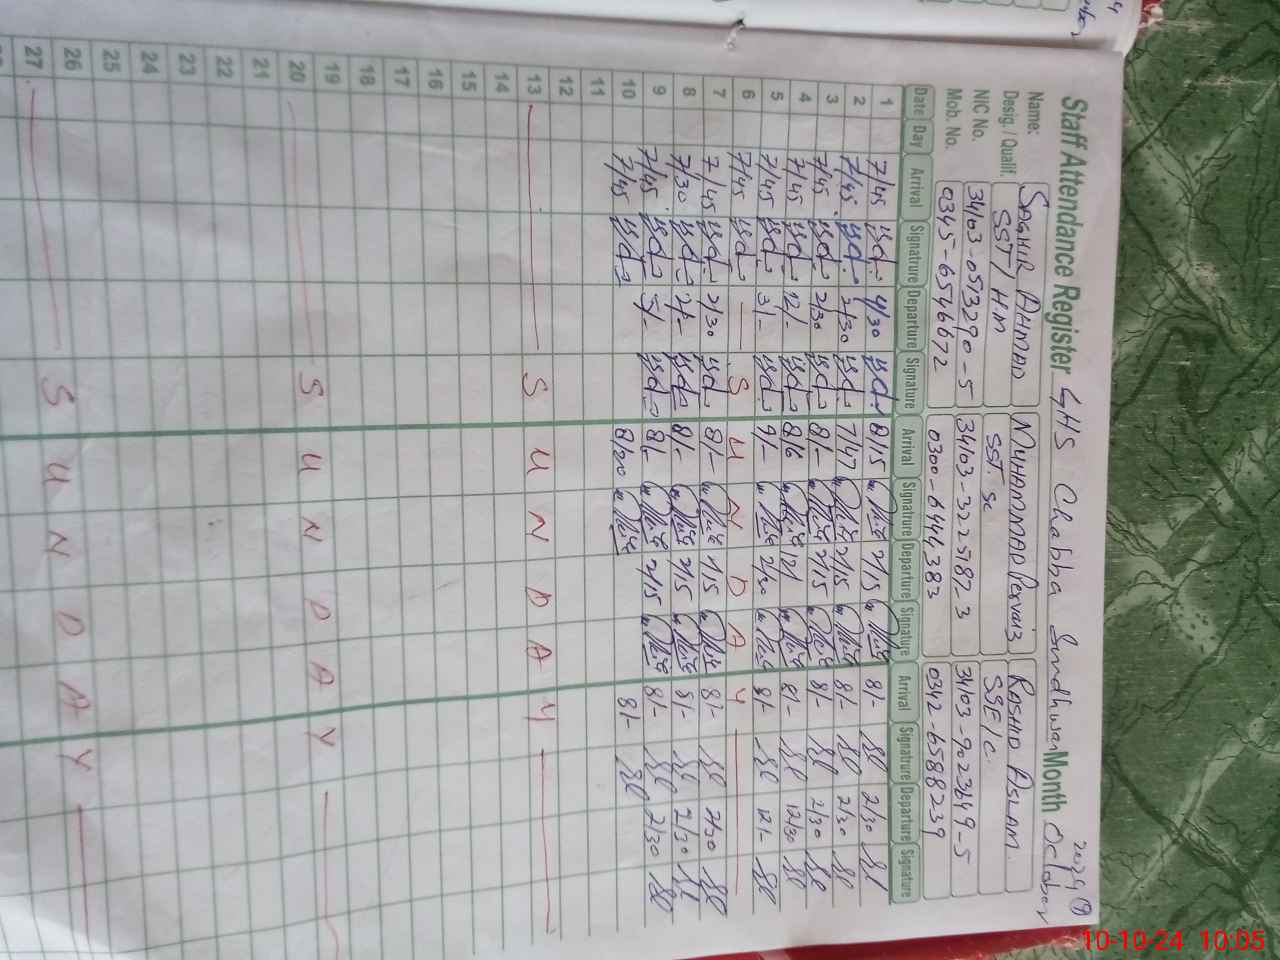 Staff Attendance Register GHS Chabba Sindhwan Month October 2024
Name: SAGHIR AHMAD MUHAMMAD Pervaiz RASHID ASLAM.
Desig. / Qualif. SST / HM SST Sc SSE/C.
NIC No. 34103-0513290-5 34103-3225187-3 34103-9023649-5
Mob. No. 0345-6546672 0300-6444383 0342-6588239
Date Day Arrival Signatrure Departure Signature Arrival Signatrure Departure Signature Arrival Signatrure Departure Signature
1 7/45 4/30 8/15 2/15 8/- 2/30
2 7/45 2/30 7/47 2/15 8/- 2/30
3 7/45 2/30 8/- 2/15 8/- 2/30
4 7/45 12/- 8/6 12/ 8/- 12/30
5 7/45 3/- 9/- 2/20 8/- 12/-
6 7/45 S U N D A Y
7 7/45 2/30 8/- 2/15 8/- 2/30
8 7/30 2/- 8/- 2/15 8/- 2/30
9 7/45 8/- 2/15 8/- 2/30
10 7/45 8/20 8/-
11
12
13 S U N D A Y
14
15
16
17
18
19
20 S U N D A Y
21
22
23
24
25
26
27 S U N D A Y
10-10-24 10:05